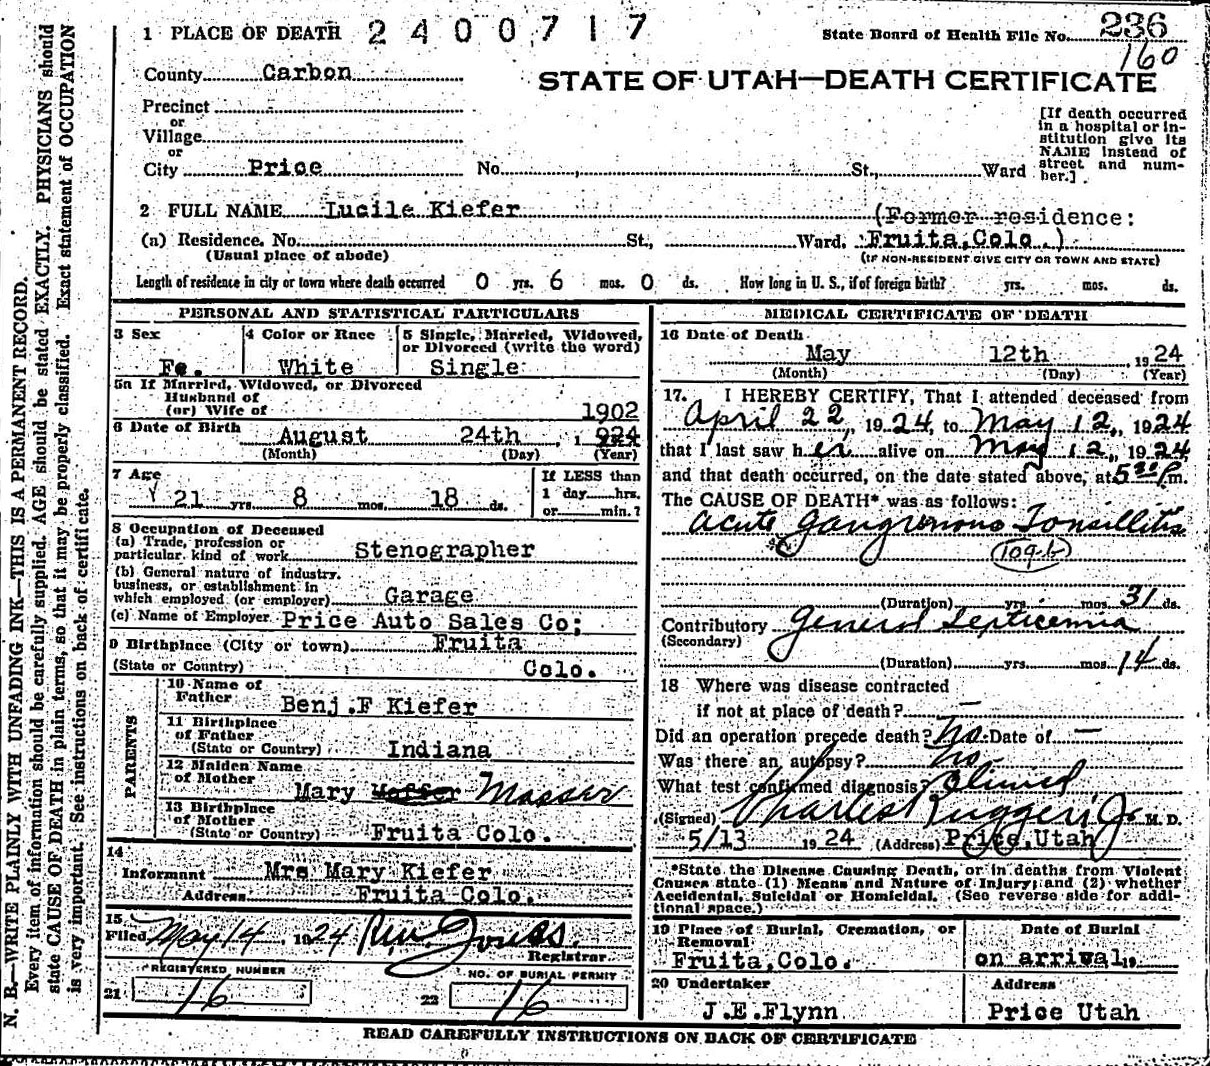 N. B.—WRITE PLAINLY WITH UNFADING INK—THIS IS A PERMANENT RECORD.
Every item of information should be carefully supplied. AGE should be stated EXACTLY. PHYSICIANS should
state CAUSE OF DEATH in plain terms, so that it may be properly classified. Exact statement of OCCUPATION
is very important. See instructions on back of certificate.
1 PLACE OF DEATH 2400717 State Board of Health File No. 236
160
County Carbon
STATE OF UTAH—DEATH CERTIFICATE
Precinct
or
Village
or
City Price No. , St., Ward
[If death occurred
in a hospital or in-
stitution give its
NAME instead of
street and num-
ber.]
2 FULL NAME Lucile Kiefer (Former residence:
(a) Residence. No. St., Ward. Fruita, Colo.)
(Usual place of abode) (IF NON-RESIDENT GIVE CITY OR TOWN AND STATE)
Length of residence in city or town where death occurred 0 yrs. 6 mos. 0 ds. How long in U. S., if of foreign birth? yrs. mos. ds.
PERSONAL AND STATISTICAL PARTICULARS
3 Sex 4 Color or Race 5 Single, Married, Widowed,
or Divorced (write the word)
Fe. White Single
5a If Married, Widowed, or Divorced
Husband of
(or) Wife of
1902
6 Date of Birth August 24th , 1 924
(Month) (Day) (Year)
7 Age
21 yrs. 8 mos. 18 ds.
If LESS than
1 day hrs.
or min.?
8 Occupation of Deceased
(a) Trade, profession or
particular kind of work Stenographer
(b) General nature of industry,
business, or establishment in
which employed (or employer) Garage
(c) Name of Employer Price Auto Sales Co;
9 Birthplace (City or town) Fruita
(State or Country) Colo.
PARENTS
10 Name of
Father Benj.F Kiefer
11 Birthplace
of Father
(State or Country) Indiana
12 Maiden Name
of Mother Mary Messer
13 Birthplace
of Mother
(State or Country) Fruita Colo.
14
Informant Mrs Mary Kiefer
Address Fruita Colo.
15
Filed May 14 , 1924
Registrar
REGISTERED NUMBER NO. OF BURIAL PERMIT
21 16 22 16
MEDICAL CERTIFICATE OF DEATH
16 Date of Death
May 12th 1924
(Month) (Day) (Year)
17. I HEREBY CERTIFY, That I attended deceased from
April 22, 1924, to May 12, 1924
that I last saw her alive on May 12, 1924,
and that death occurred, on the date stated above, at 5 30 P.m.
The CAUSE OF DEATH* was as follows:
Acute Gangrenous Tonsillitis
109-b
(Duration) yrs. mos. 31 ds.
Contributory General Septicemia
(Secondary)
(Duration) yrs. mos. 14 ds.
18 Where was disease contracted
if not at place of death? —
Did an operation precede death? No. Date of —
Was there an autopsy? No.
What test confirmed diagnosis? Clinical
(Signed) Charles Ruggeri Jr M. D.
5/13 1924 (Address) Price, Utah
*State the Disease Causing Death, or in deaths from Violent
Causes state (1) Means and Nature of Injury; and (2) whether
Accidental, Suicidal or Homicidal. (See reverse side for addi-
tional space.)
19 Place of Burial, Cremation, or
Removal
Fruita, Colo.
Date of Burial
on arrival, 19
20 Undertaker Address
J.E.Flynn Price Utah
READ CAREFULLY INSTRUCTIONS ON BACK OF CERTIFICATE